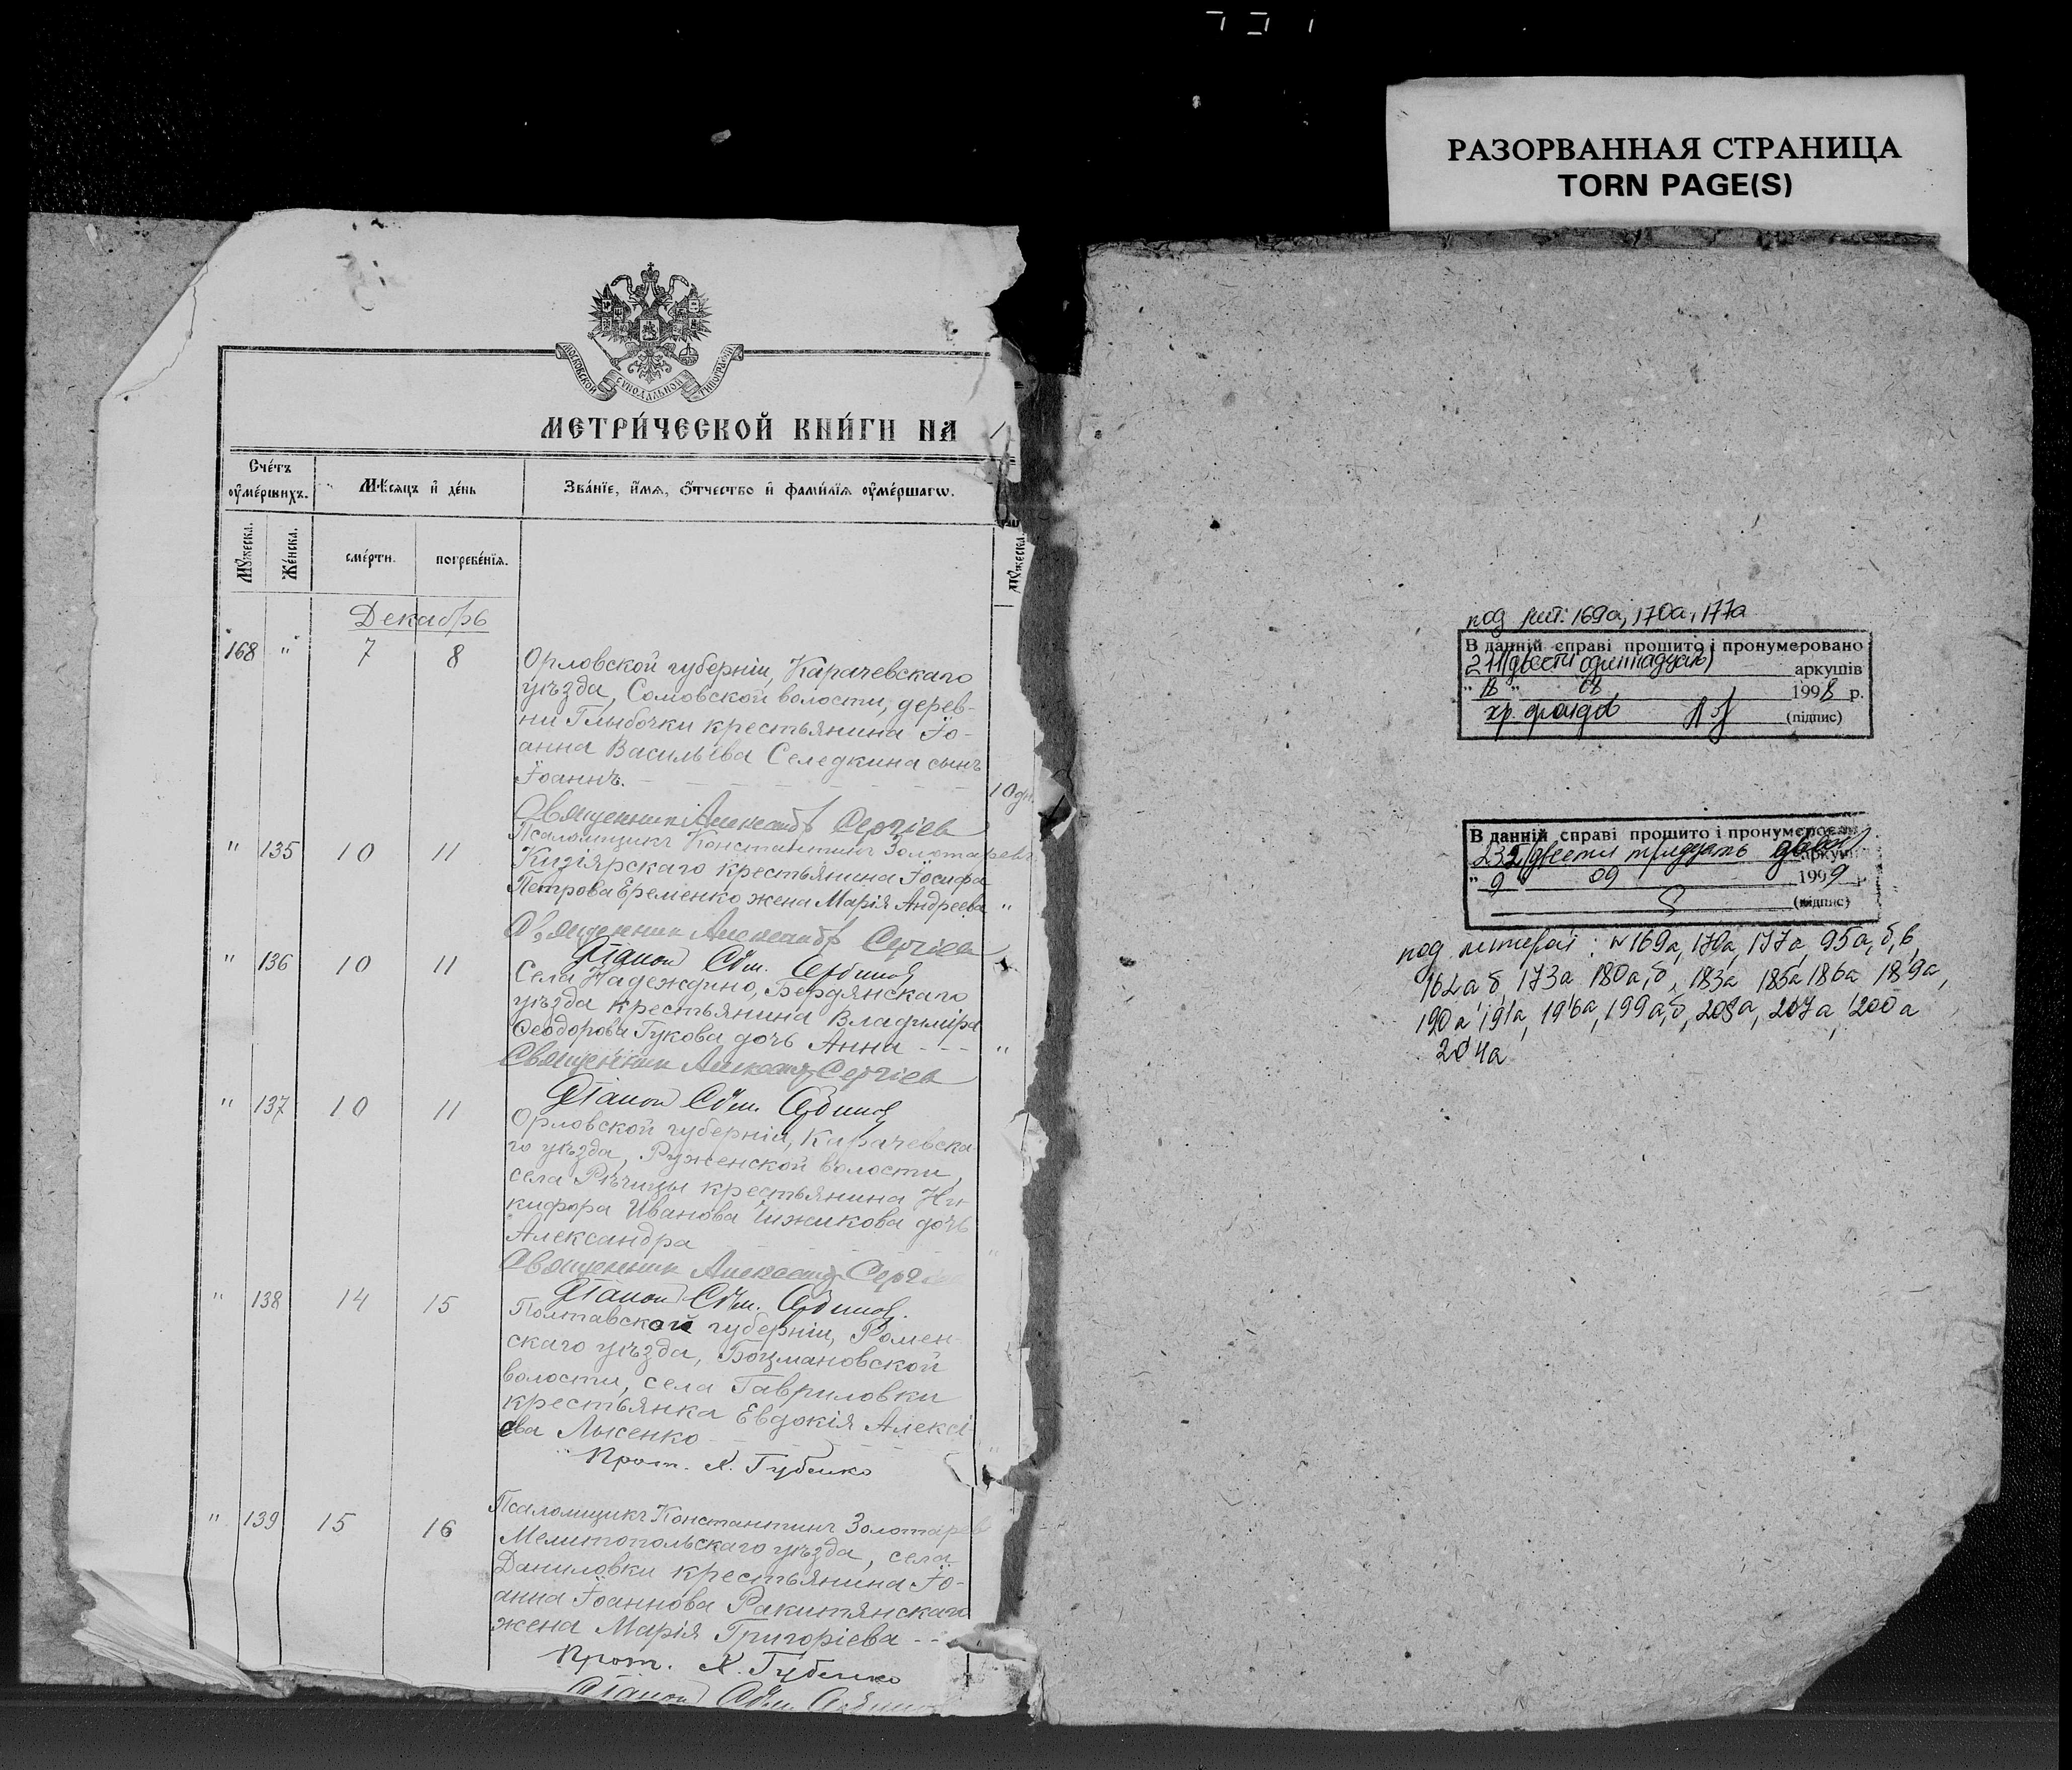 РАЗОРВАННАЯ СТРАНИЦА
TORN PAGE(S)
МОСКОВСКОЙ СѴНОДАЛЬНОЙ ТИПОГРАФІИ
МЕТРИ́ЧЕСКОЙ КНИ́ГИ НА 1
Сче́тъ оумє́ршихъ.
Мѣ́сяцъ и де́нь
Зва́нїе, и́мѧ, о́тчество и фами́лїѧ оумє́ршагѡ.
Мꙋ́жеска.
Же́нска.
сме́рти.
погребе́нїѧ.
Мꙋ́жеска.
Декабрь
168 " 7 8
Орловской губерніи, Карачевскаго
уѣзда, Сомовской волости, дерев-
ни Глыбочки крестьянина Іо-
анна Васильева Селедкина сынъ
Іоаннъ. 10 дн.
Священникъ Александр Сергіев
Псаломщикъ Константинъ Золотаревъ
" 135 10 11
Кизіярскаго крестьянина Іосифа
Петрова Еременко жена Марія Андреева "
Священник Александр Сергіев
Діакон
" 136 10 11
Села Надеждино, Бердянскаго
уѣзда крестьянина Владиміра
Ѳеодорова Гукова дочь Анна - - - "
Священник Александр Сергіев
Діакон
" 137 10 11
Орловской губерніи, Карачевска-
го уѣзда, Руженской волости,
села Рѣчицы крестьянина Ни-
кифора Иванова Чижикова дочь
Александра
Священник Александр Сергіев
Діакон
" 138 14 15
Полтавской губерніи, Ромен-
скаго уѣзда, Боцмановской
волости, села Гавриловки
крестьянка Евдокія Алексі-
ева Лысенко
Прот. Х. Губенко
Псаломщикъ Константинъ Золотарев
" 139 15 16
Мелитопольскаго уѣзда, села
Даниловки крестьянина Іо-
анна Іоаннова Ракитянскаго
жена Марія Григоріева - -
Прот. Х. Губенко
Діакон
под лит: 169а, 170а, 177а
В данній справі прошито і пронумеровано
211 (двести одиннадцать) аркушів
1998 р.
хр. фондов (підпис)
В данній справі прошито і пронумеровано
232 (двести тридцать два) аркушів
" 9 " 09 1999 р.
(підпис)
под литерой: № 169а, 170а, 177а, 95а,б,в,
162а б, 173а 180а,б, 183а 185а 186а 189а,
190а 191а, 196а, 199а,б, 203а, 207а, 200а
204а